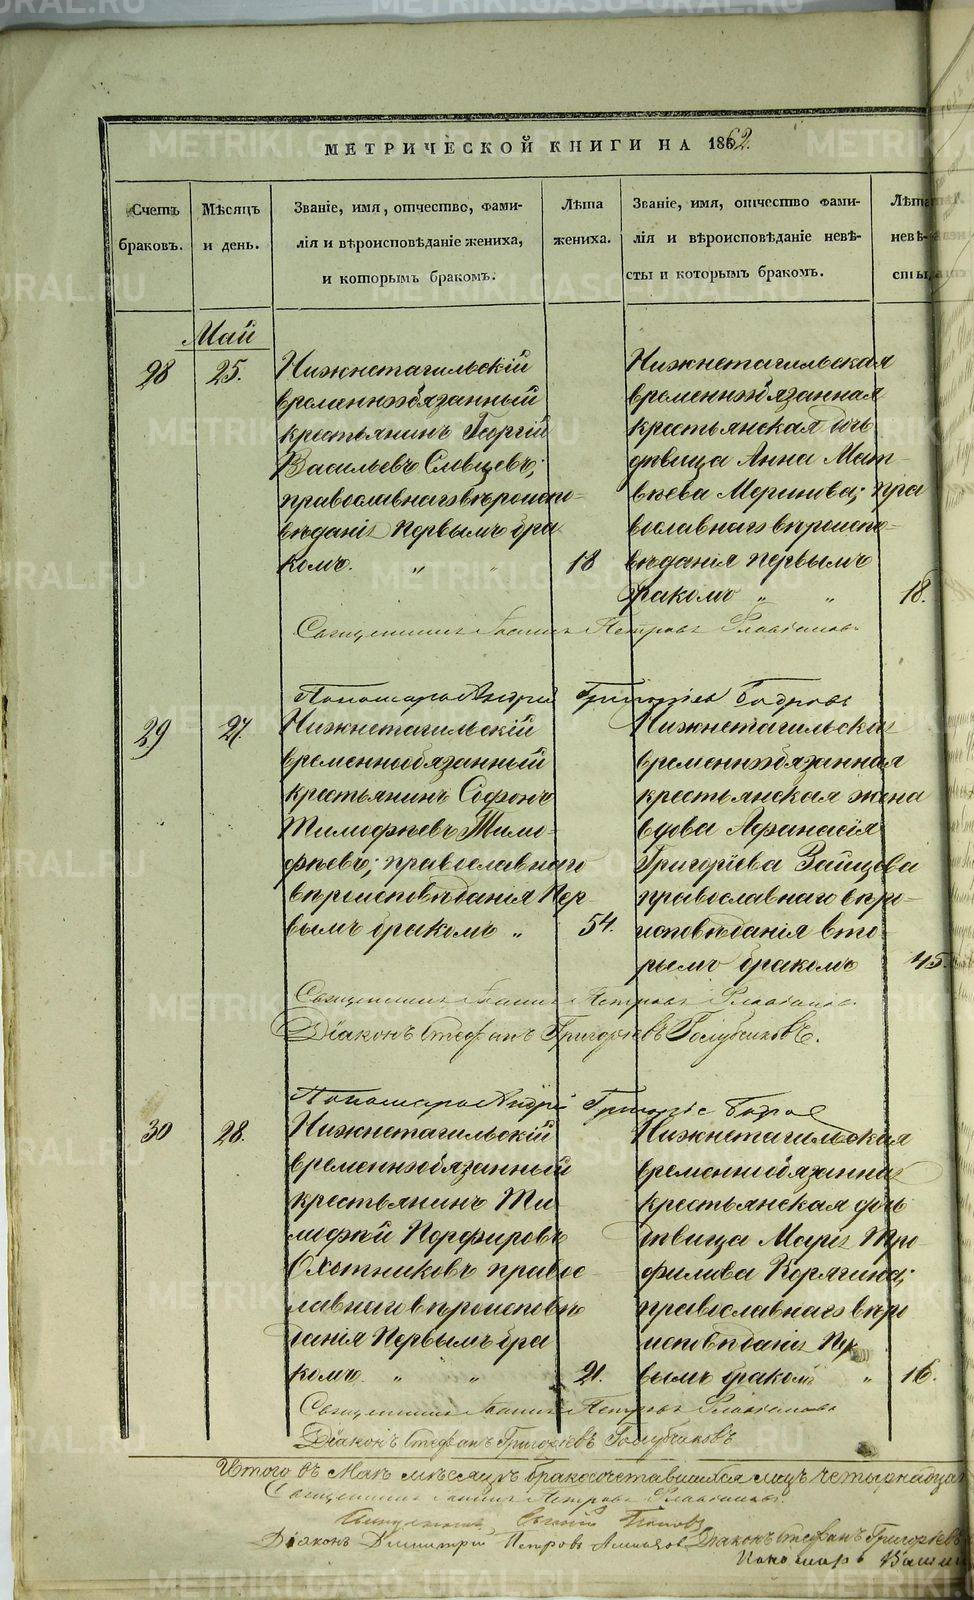 МЕТРИЧЕСКОЙ КНИГИ НА 1862.
Счетъ браковъ.
Мѣсяцъ и день.
Званіе, имя, отчество, фами-
лія и вѣроисповѣданіе жениха,
и которымъ бракомъ.
Лѣта жениха.
Званіе, имя, отчество фами-
лія и вѣроисповѣданіе невѣ-
сты и которымъ бракомъ.
Лѣта
невѣ-
сты,
Май
28
25.
Нижнетагильскій
временнообязанный
крестьянинъ Георгій
Васильевъ Словцевъ;
православнаго вѣроиспо-
вѣданія первымъ бра
комъ. „ „
18
Нижнетагильская
временнообязанная
крестьянская дочь
дѣвица Анна Мат-
вѣева Меринова; пра
вославнаго вѣроиспо-
вѣданія первымъ
бракомъ „ „
18.
Священникъ Іоаннъ Петровъ Флавіановъ
Пономарь Андрей Григорьевъ Бобровъ
29
27.
Нижнетагильскій
временнообязанный
крестьянинъ Софонъ
Тимофѣевъ Тимо-
фѣевъ; православнаго
вѣроисповѣданія пер-
вымъ бракомъ „
54.
Нижнетагильская
временнообязанная
крестьянская жена
вдова Афанасія
Григоріева Зайцова
православнаго вѣро-
исповѣданія вто-
рымъ бракомъ
45.
Священникъ Іоаннъ Петровъ Флавіановъ
Діаконъ Стефанъ Григорьевъ Голубчиковъ.
Пономарь Андрей Григорьевъ Бобровъ
30
28.
Нижнетагильскій
временнообязанный
крестьянинъ Ти
мофѣй Порфировъ
Охотниковъ правос-
лавнаго вѣроисповѣ
данія первымъ бра
комъ. „ „
21.
Нижнетагильская
временнообязанная
крестьянская дочь
дѣвица Марія Тро-
филова Корягина;
православнаго вѣро
исповѣданія пер
вымъ бракомъ „
16.
Священникъ Іоаннъ Петровъ Флавіановъ
Діаконъ Стефанъ Григорьевъ Голубчиковъ
Итого въ Маѣ мѣсяцѣ бракосочетавшихся лицъ четырнадцат
Священникъ Іоаннъ Петровъ Флавіановъ.
Священникъ Евгеній Поповъ
Діяконъ Димитрій Петровъ Діаконъ Стефанъ Григорьевъ
Пономарь
METRIKI.GASO-URAL.RU